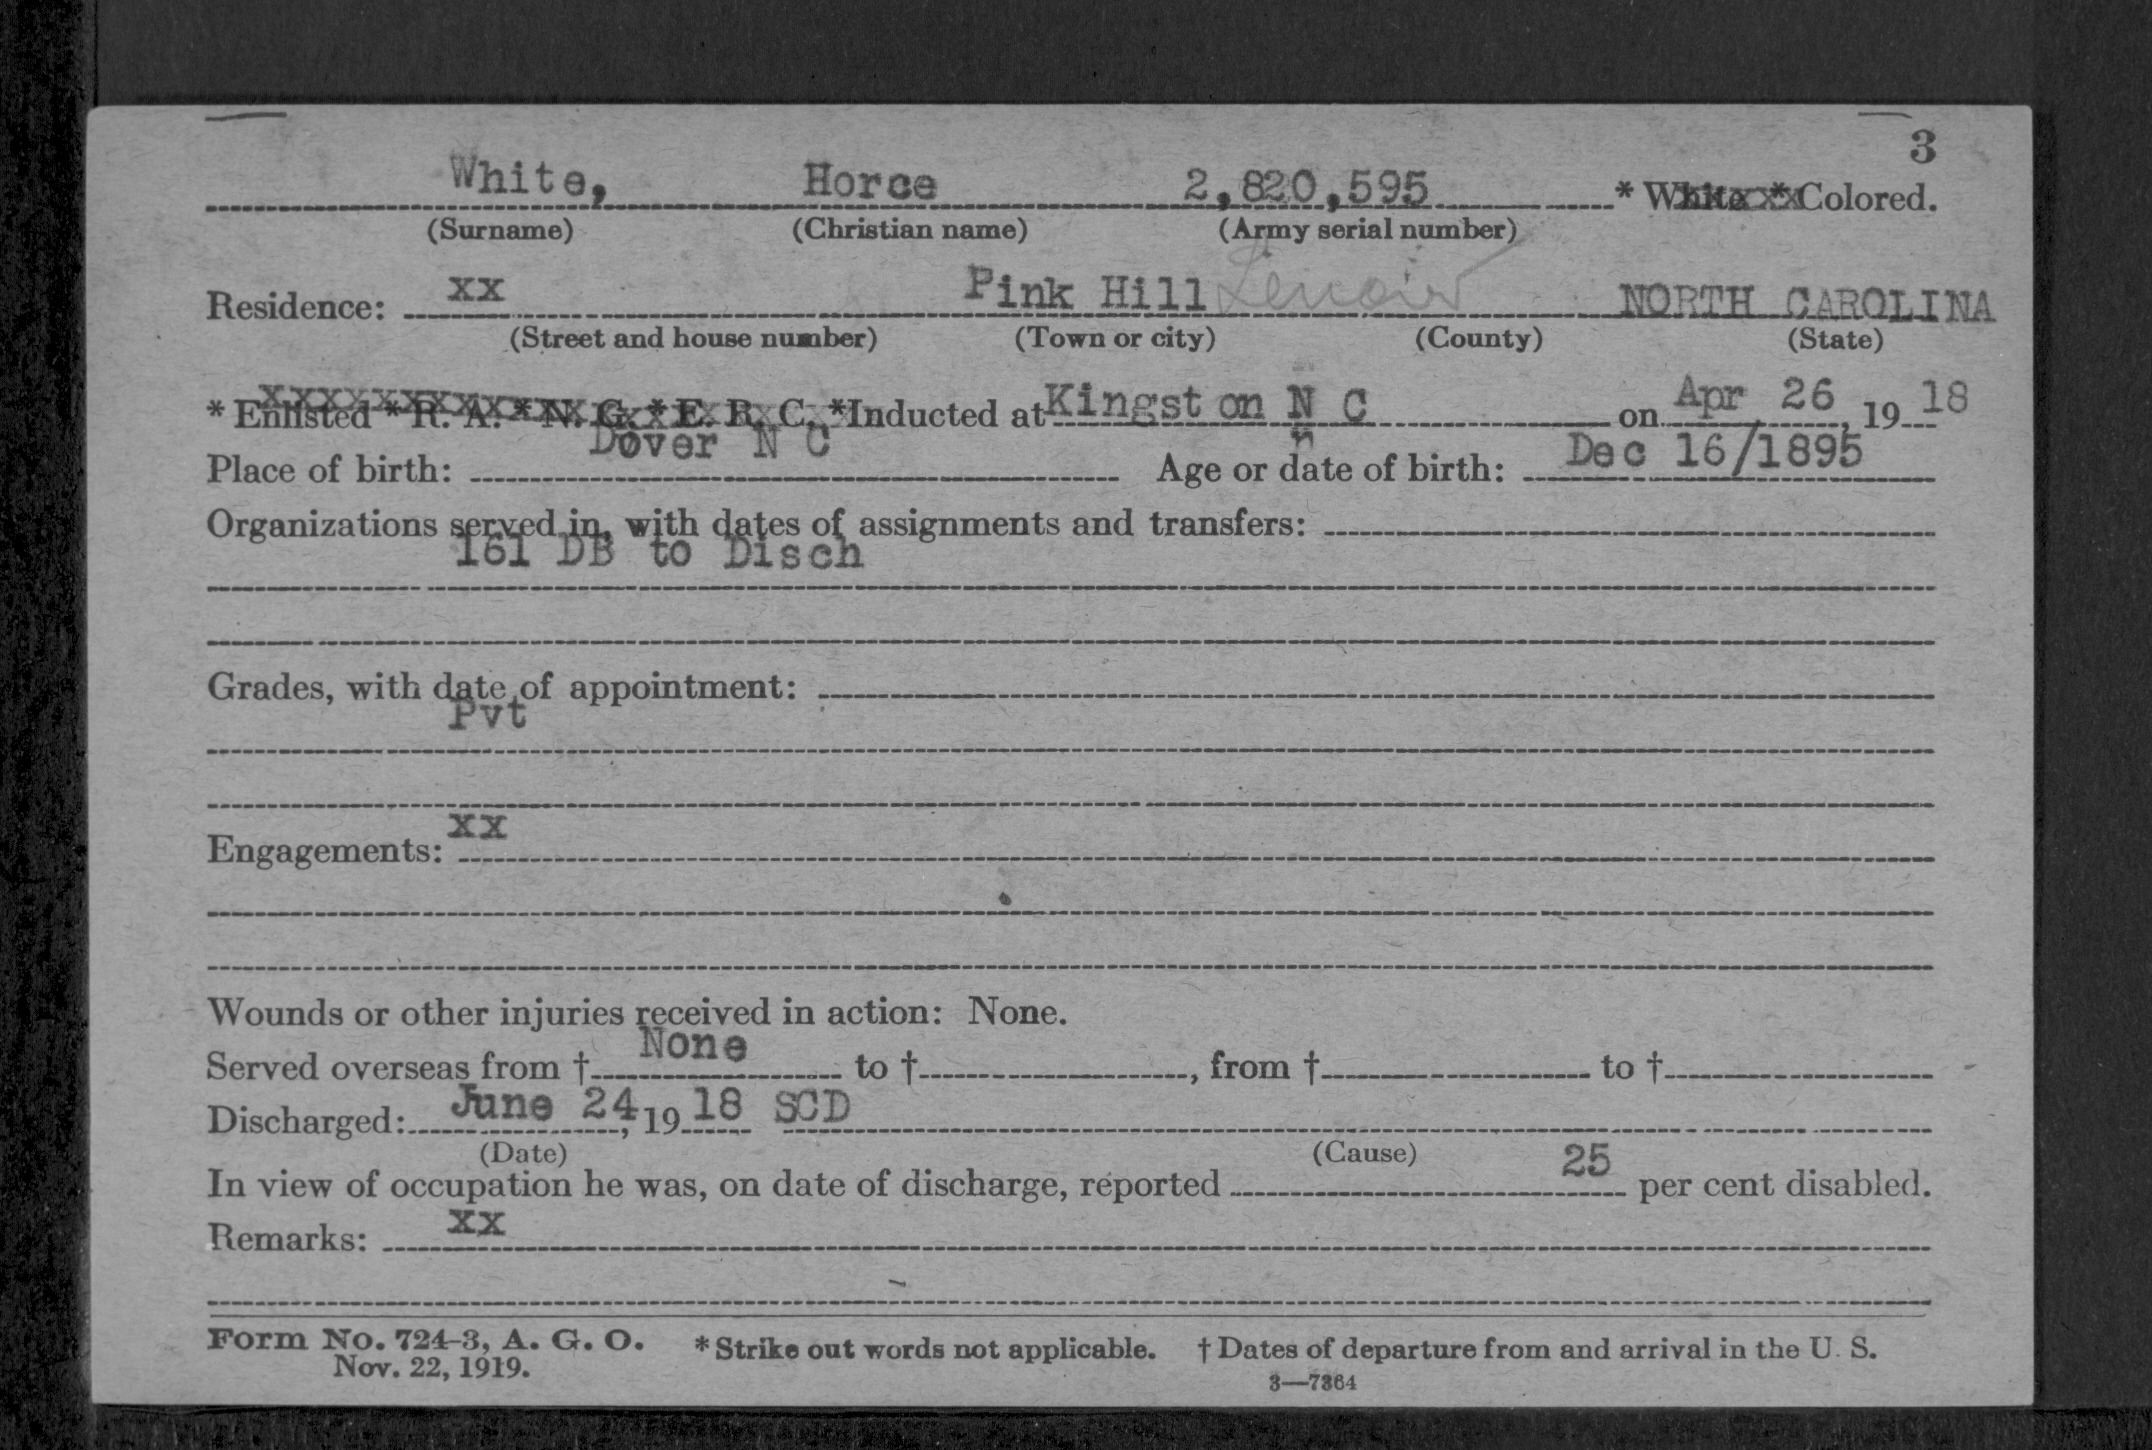 3
White, Horce 2,820,595 * White * Colored.
(Surname) (Christian name) (Army serial number)
Residence: xx Pink Hill Lenoir NORTH CAROLINA
(Street and house number) (Town or city) (County) (State)
* Enlisted * R. A. * N. G. * E. R. C. *Inducted at Kingston N C on Apr 26, 1918
Place of birth: Dover N C Age or date of birth: Dec 16/1895
Organizations served in, with dates of assignments and transfers:
161 DB to Disch
Grades, with date of appointment:
Pvt
Engagements: xx
Wounds or other injuries received in action: None.
Served overseas from † None to †, from † to †
Discharged: June 24, 1918 SCD
(Date) (Cause)
In view of occupation he was, on date of discharge, reported 25 per cent disabled.
Remarks: xx
Form No. 724-3, A. G. O. * Strike out words not applicable. † Dates of departure from and arrival in the U. S.
Nov. 22, 1919. 3—7364